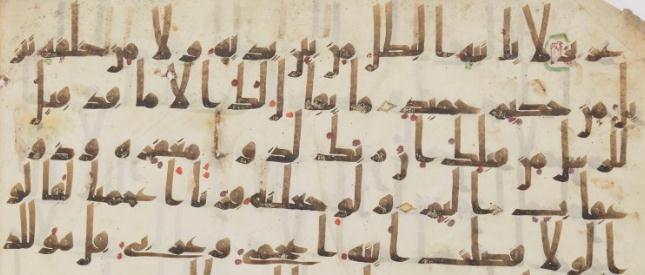 يز لا ياتيه البطل من بين يديه ولا من خلفه تنز
يل من حكيم حميد ما يقال لك الا ما قد قيل
للرسل من قبلك ان ربك لذو مغفرة وذو
عقاب اليم ولو جعلنه قرانا اعجميا لقالو
ا لولا فصلت ايته اعجمي وعربي قل هو للذ